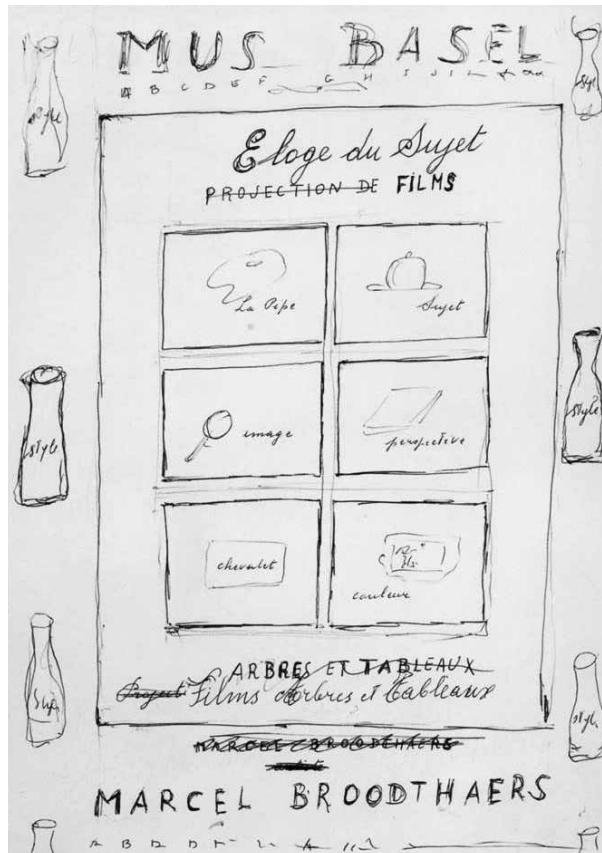 MUS BASEL
A B C D E F G H I J
style
style
Eloge du Sujet
PROJECTION DE FILMS
La Pipe
Sujet
style
style
image
perspective
chevalet
couleur
style
style
ARBRES ET TABLEAUX
Projecti Films Arbres et Tableaux
MARCEL BROODTHAERS
artiste
MARCEL BROODTHAERS
A B